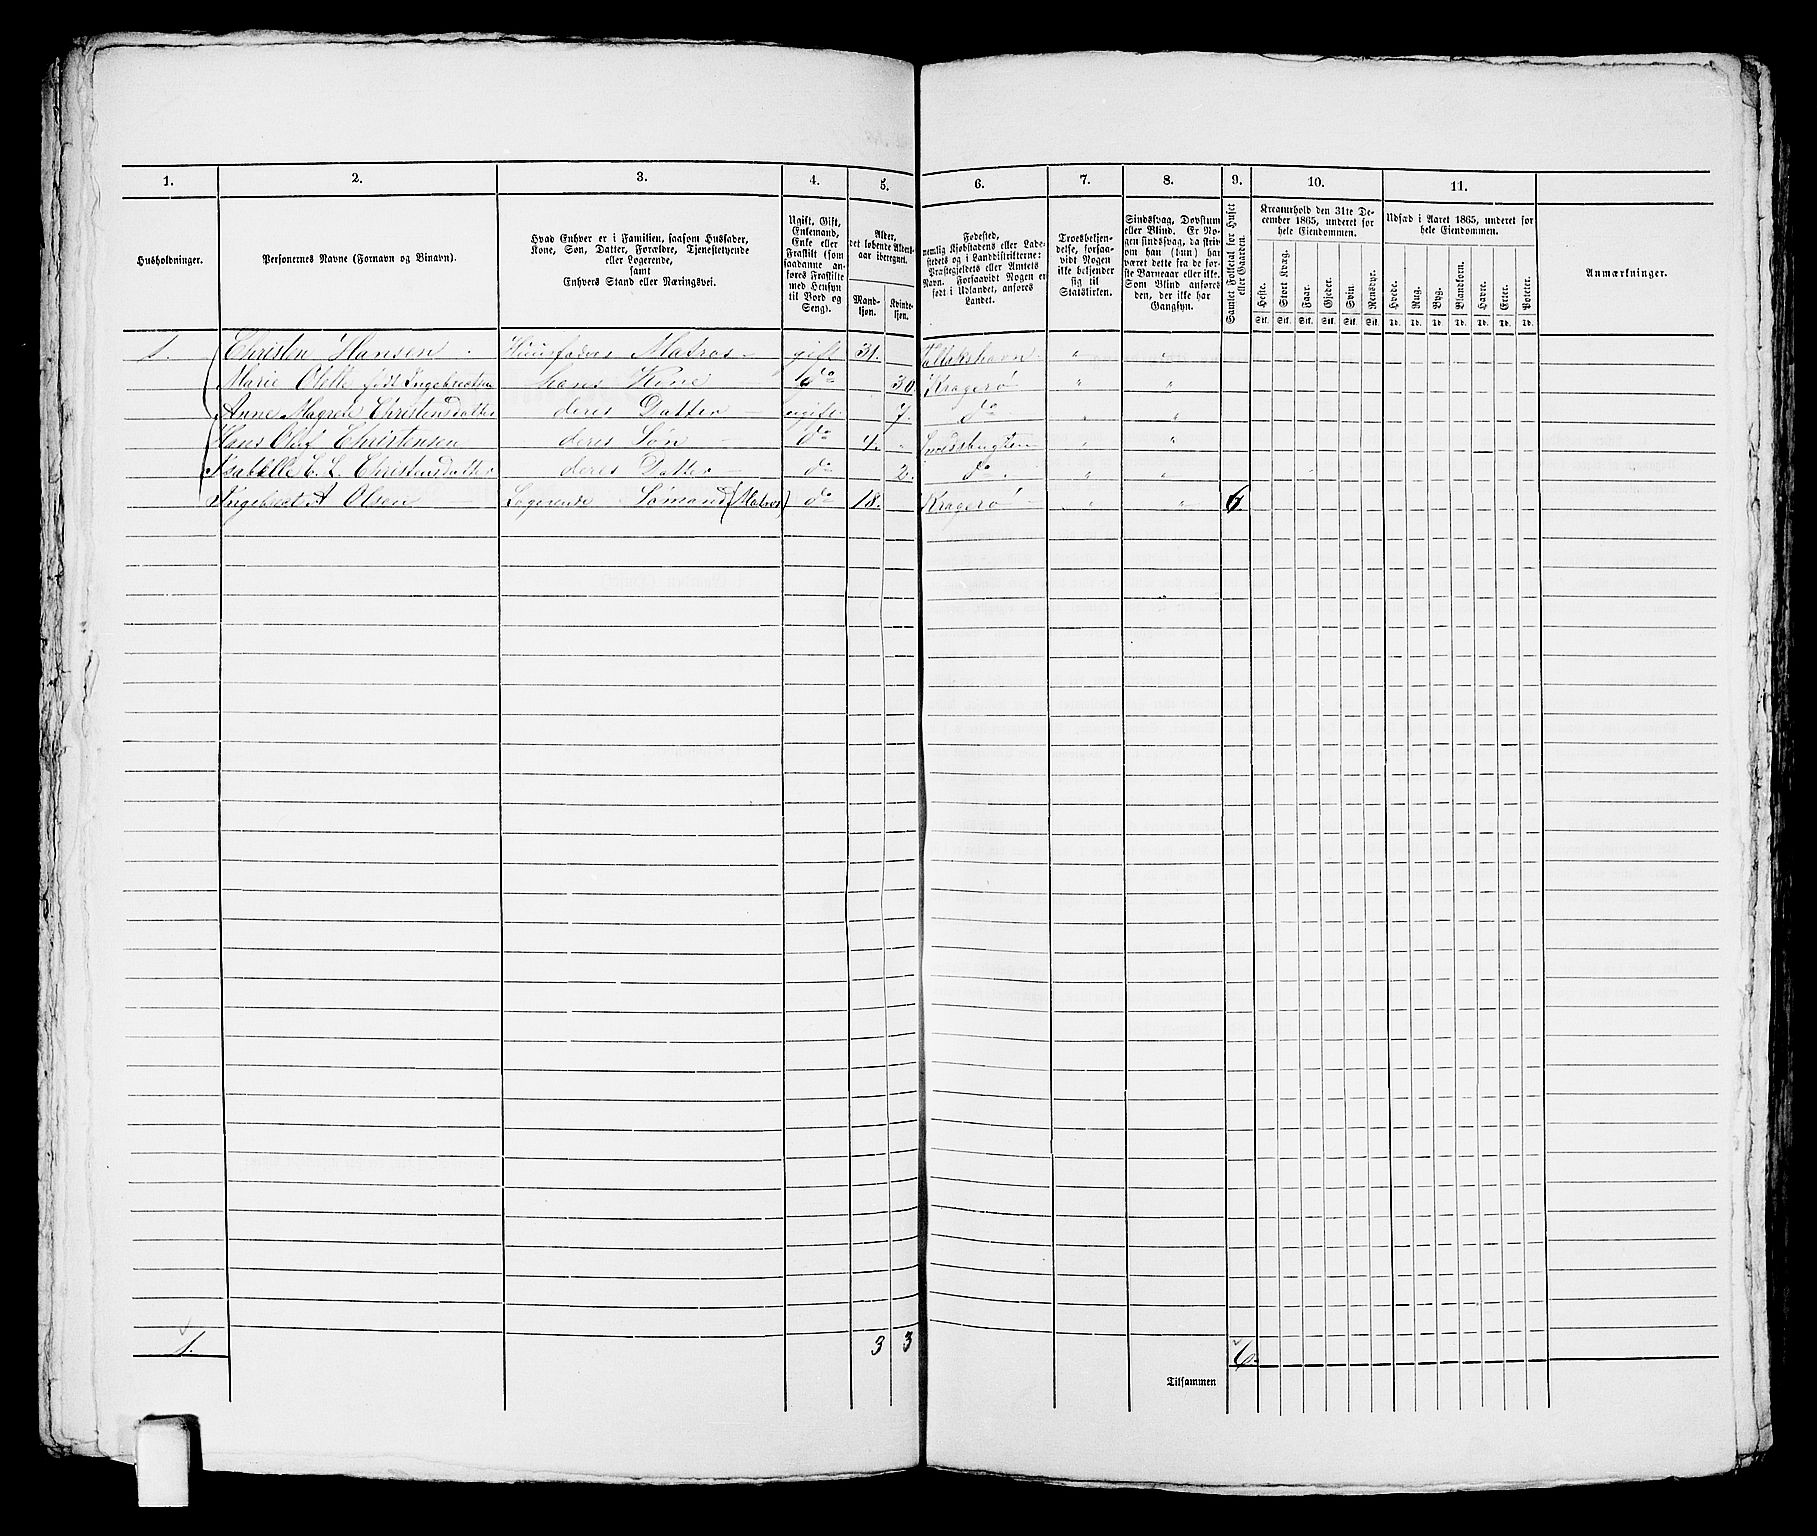 1. 2. 3. 4. 5. 6. 7. 8. 9. 10. 11.
Husholdninger.
Personernes Navne (Fornavn og Binavn).
Hvad Enhver er i Familien, saasom Husfader,
Kone, Søn, Datter, Forældre, Tjenestetyende
eller Logerende,
samt
Enhvers Stand eller Næringsvei.
Ugift, Gift,
Enkemand,
Enke eller
Fraskilt (som
saadanne an-
føres Fraskilte
med Hensyn
til Bord og
Seng).
Alder,
det løbende Alders-
aar iberegnet.
Mand-
kjøn.
Kvinde-
kjøn.
Fødested,
nemlig Kjøbstadens eller Lade-
stedets og i Landdistrikterne:
Præstegjeldets eller Amtets
Navn. Forsaavidt Nogen er
født i Udlandet, anføres
Landet.
Troesbekjen-
delse, forsaa-
vidt Nogen
ikke bekjender
sig til
Statskirken.
Sindssvag, Døvstum
eller Blind. Er No-
gen sindssvag, da skriv
om han (hun) har
været dette fra de før-
ste Barneaar eller ikke.
Som Blind anføres
den, der ikke har
Gangsyn.
Samlet Folketal for Huset
eller Gaarden.
Kreaturhold den 31te De-
cember 1865, underet for
hele Eiendommen.
Heste. Stort Kvæg. Faar. Gjeder. Svin. Rensdyr.
Stk. Stk. Stk. Stk. Stk. Stk.
Udsæd i Aaret 1865, underet for
hele Eiendommen.
Hvede. Rug. Byg. Blandkorn. Havre. Erter. Poteter.
Td. Td. Td. Td. Td. Td. Td.
Anmærkninger.
1. Christen Hansen Huusfader Matros gift 31. " "
Marie Olette født Ingebretsen hans Kone do 30. Kragerø " "
Anne Magrete Christensdatter deres Datter ugift 7. do " "
Hans Oluf Christensen deres Søn do 4. " " "
Isabelle C. L. Christensdatter deres Datter do 2. do " "
Ingebret A Olsen Logerende Sømand (Matros) do 18. Kragerø " " 6
1. 3 3 6.
Tilsammen